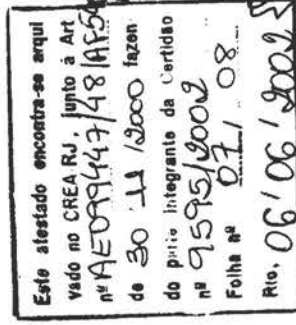 Este atestado encontra-se arqui
vado no CREA-RJ, junto à Art
nº AE099447/48/AF54
de 30 11 /2000 fazen
do parte integrante da Certidão
nº 9595/2002
Folha nº 07/08
Rio, 06/06/2002